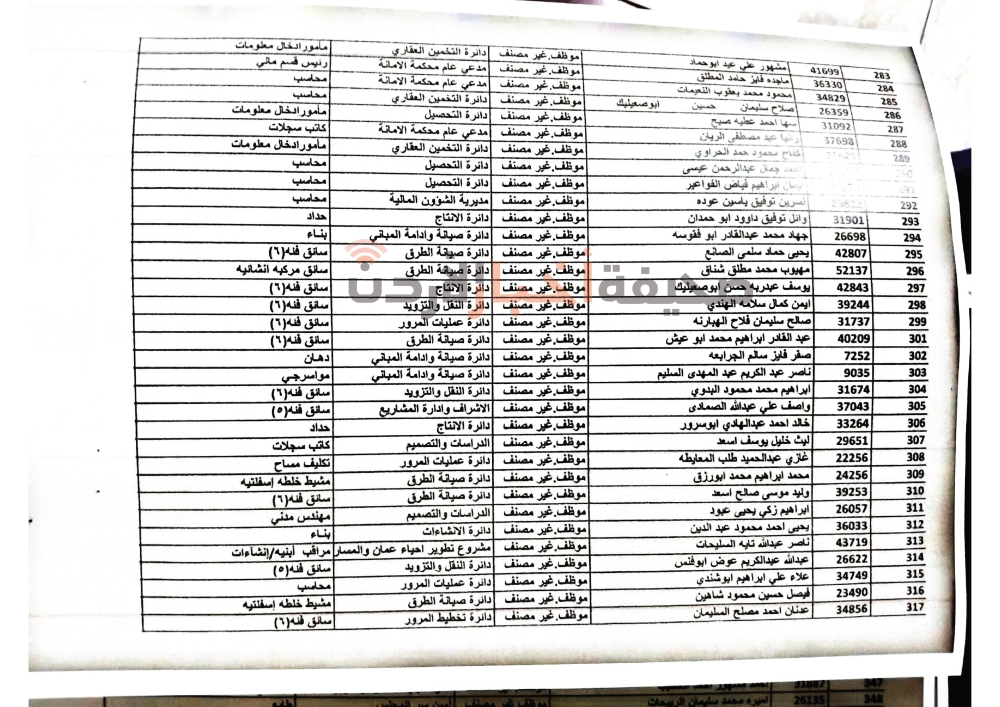 283 41699 مشهور علي عبد ابوحماد موظف.غير مصنف دائرة التخمين العقاري مأمور ادخال معلومات
284 36330 ماجده فايز حامد المطلق موظف.غير مصنف مدعي عام محكمة الامانة رئيس قسم مالي
285 34829 محمود محمد يعقوب النعيمات موظف.غير مصنف مدعي عام محكمة الامانة محاسب
286 26359 صلاح سليمان حسين ابوصعيليك موظف.غير مصنف دائرة التخمين العقاري محاسب
287 31092 سها احمد عطيه صبح موظف.غير مصنف دائرة التحصيل مأمور ادخال معلومات
288 37698 رانيا عبد مصطفى الريان موظف.غير مصنف مدعي عام محكمة الامانة كاتب سجلات
289 كفاح محمود حمد الحراوي موظف.غير مصنف دائرة التخمين العقاري مأمور ادخال معلومات
جمال عبدالرحمن عيسى موظف.غير مصنف دائرة التحصيل محاسب
ابراهيم فياض الفواعير موظف.غير مصنف دائرة التحصيل محاسب
292 نسرين توفيق ياسين عوده موظف.غير مصنف مديرية الشؤون المالية محاسب
293 31901 وائل توفيق داوود ابو حمدان موظف.غير مصنف دائرة الانتاج حداد
294 26698 جهاد محمد عبدالقادر ابو فقوسه موظف.غير مصنف دائرة صيانة وادامة المباني بناء
295 42807 يحيى حماد سلمى الصانع موظف.غير مصنف دائرة صيانة الطرق سائق فنه(٦)
296 52137 مهيوب محمد مطلق شناق موظف.غير مصنف دائرة صيانة الطرق سائق مركبه انشائيه
297 42843 يوسف عبدربه حسن ابوصعيليك موظف.غير مصنف دائرة الانتاج سائق فنه(٦)
صحيفة أخبار الاردن
298 39244 ايمن كمال سلامه الهندي موظف.غير مصنف دائرة النقل والتزويد سائق فنه(٦)
299 31737 صالح سليمان فلاح الهبارنه موظف.غير مصنف دائرة عمليات المرور سائق فنه(٦)
301 40209 عبد القادر ابراهيم محمد ابو عيش موظف.غير مصنف دائرة صيانة الطرق سائق فنه(٦)
302 7252 صقر فايز سالم الجرابعه موظف.غير مصنف دائرة صيانة وادامة المباني دهان
303 9035 ناصر عبد الكريم عبد المهدى السليم موظف.غير مصنف دائرة صيانة وادامة المباني مواسرجي
304 31674 ابراهيم محمد محمود البدوي موظف.غير مصنف دائرة النقل والتزويد سائق فنه(٦)
305 37043 واصف علي عبدالله الصمادى موظف.غير مصنف الاشراف وادارة المشاريع سائق فنه(٥)
306 33264 خالد احمد عبدالهادي ابوسرور موظف.غير مصنف دائرة الانتاج حداد
307 29651 ليث خليل يوسف اسعد موظف.غير مصنف الدراسات والتصميم كاتب سجلات
308 22256 غازي عبدالحميد طلب المعايطه موظف.غير مصنف دائرة عمليات المرور تكليف مساح
309 24256 محمد ابراهيم محمد ابورزق موظف.غير مصنف دائرة صيانة الطرق مشيط خلطه إسفلتيه
310 39253 وليد موسى صالح اسعد موظف.غير مصنف دائرة صيانة الطرق سائق فنه(٦)
311 26057 ابراهيم زكي يحيى عبود موظف.غير مصنف الدراسات والتصميم مهندس مدني
312 36033 يحيى احمد محمود عبد الدين موظف.غير مصنف دائرة الانشاءات بناء
313 43719 ناصر عبدالله تايه السليحات موظف.غير مصنف مشروع تطوير احياء عمان والمسار مراقب أبنيه/إنشآءات
314 26622 عبدالله عبدالكريم عوض ابوفنس موظف.غير مصنف دائرة النقل والتزويد سائق فنه(٥)
315 34749 علاء علي ابراهيم ابوشندي موظف.غير مصنف دائرة عمليات المرور محاسب
316 23490 فيصل حسين محمود شاهين موظف.غير مصنف دائرة صيانة الطرق مشيط خلطه إسفلتيه
317 34856 عدنان احمد مصلح السليمان موظف.غير مصنف دائرة تخطيط المرور سائق فنه(٦)
347 31887
348 26135 اميره محمد سليمان الربيحات موظف.غير مصنف